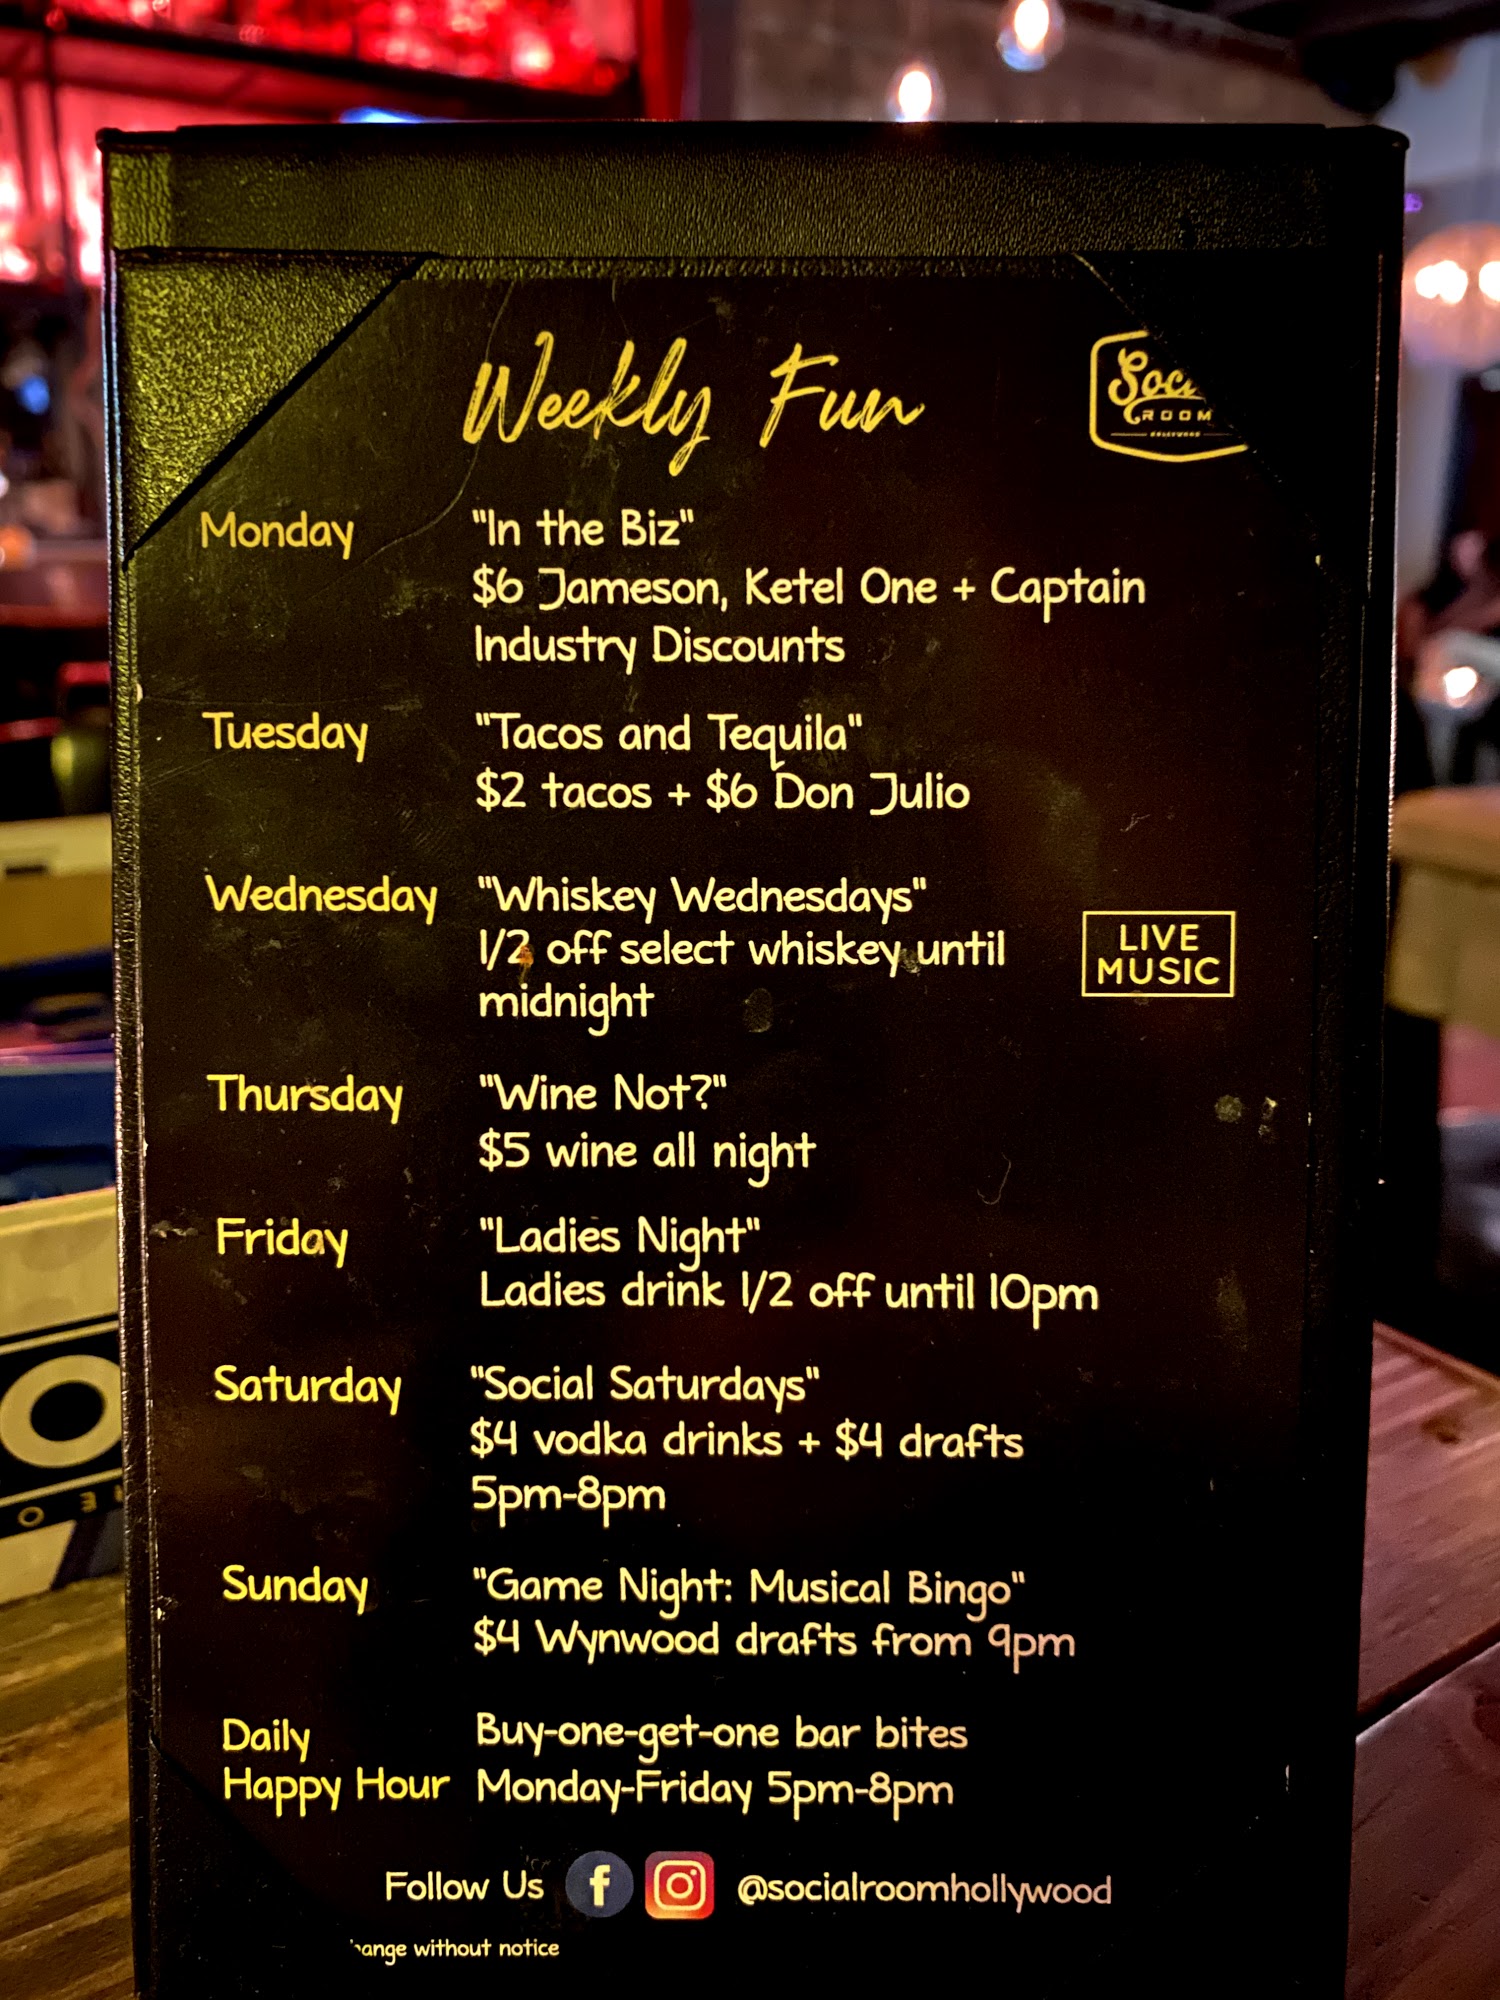 Weekly Fun
ROOM
HOLLYWOOD
Monday
"In the Biz"
$6 Jameson, Ketel One + Captain
Industry Discounts
Tuesday
"Tacos and Tequila"
$2 tacos + $6 Don Julio
Wednesday
"Whiskey Wednesdays"
1/2 off select whiskey until
midnight
LIVE
MUSIC
Thursday
"Wine Not?"
$5 wine all night
Friday
"Ladies Night"
Ladies drink 1/2 off until 10pm
Saturday
"Social Saturdays"
$4 vodka drinks + $4 drafts
5pm-8pm
Sunday
"Game Night: Musical Bingo"
$4 Wynwood drafts from 9pm
Daily
Happy Hour
Buy-one-get-one bar bites
Monday-Friday 5pm-8pm
Follow Us f @socialroomhollywood
without notice